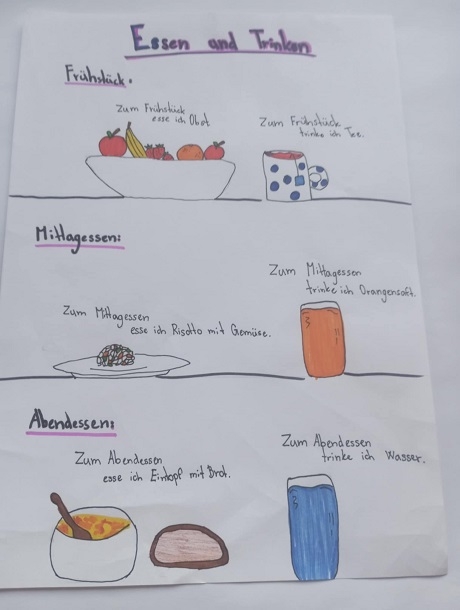 Essen and Trinken
Frühstück.
Zum Frühstück
esse ich Obst
Zum Frühstück
trinke ich Tee.
Mittagessen:
Zum Mittagessen
trinke ich Orangensaft.
Zum Mittagessen
esse ich Risotto mit Gemüse.
Abendessen:
Zum Abendessen
trinke ich Wasser.
Zum Abendessen
esse ich Eintopf mit Brot.